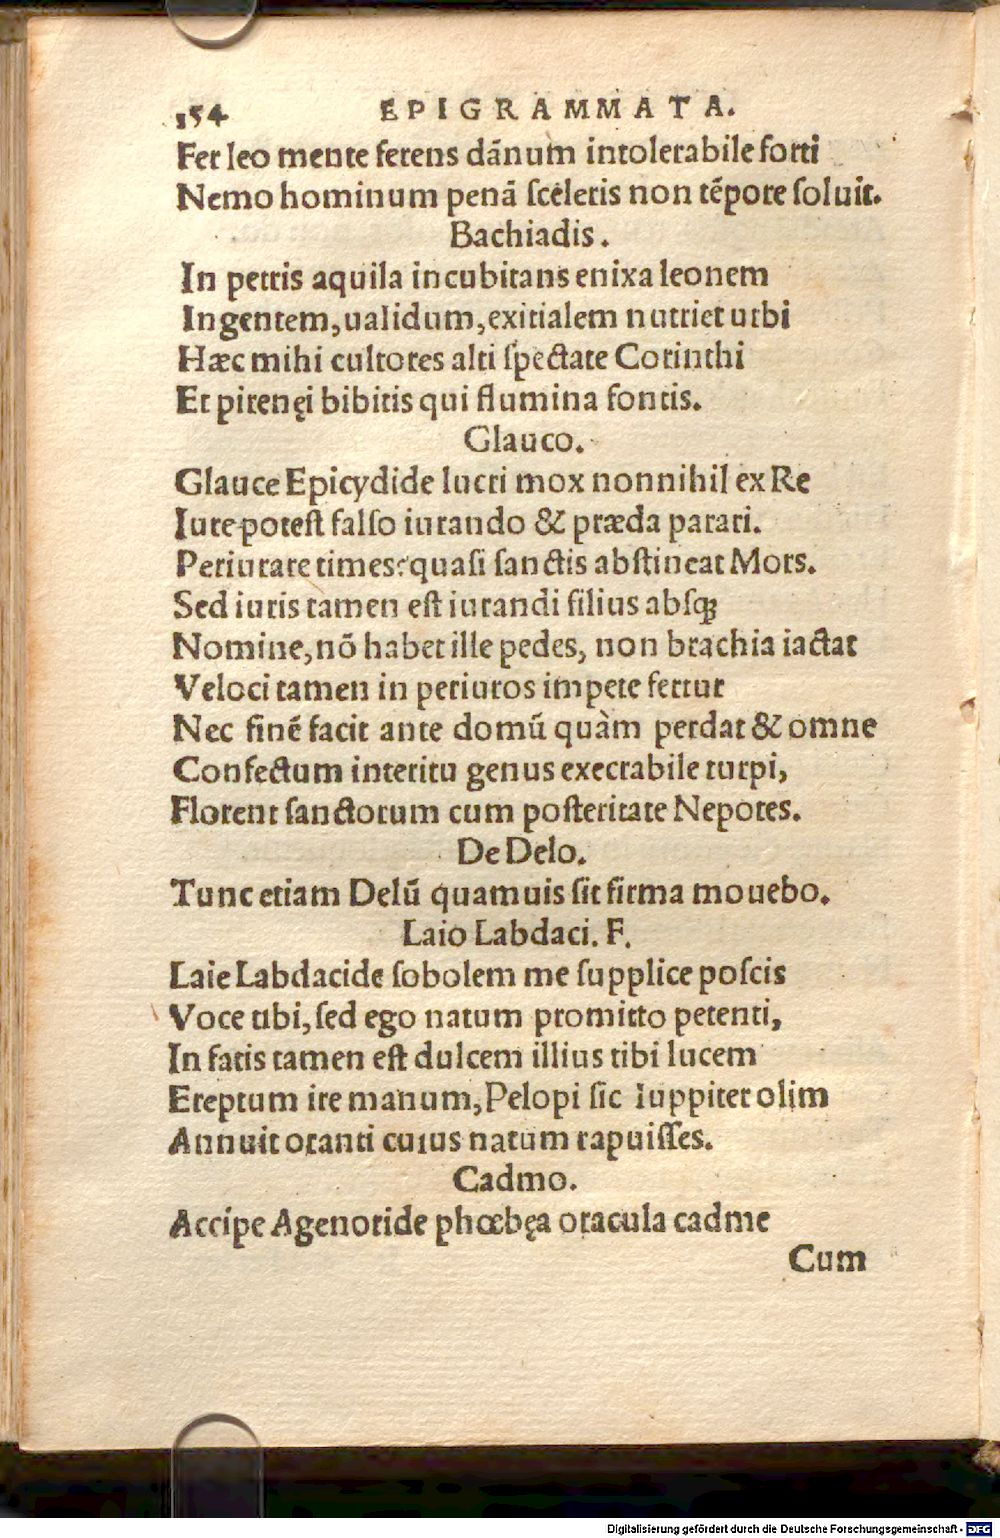 154 EPIGRAMMATA.
Fer leo mente ferens dānum intolerabile forti
Nemo hominum penā sceleris non tēpore soluit.
Bachiadis.
In petris aquila incubitans enixa leonem
Ingentem, ualidum, exitialem nutriet urbi
Hæc mihi cultores alti spectate Corinthi
Et pirenęi bibitis qui flumina fontis.
Glauco.
Glauce Epicydide lucri mox nonnihil ex Re
Iure potest falso iurando & præda parari.
Periurare times: quasi sanctis abstineat Mors.
Sed iuris tamen est iurandi filius absqꝫ
Nomine, nō habet ille pedes, non brachia iactat
Veloci tamen in periuros impete fertur
Nec finē facit ante domū quàm perdat & omne
Confectum interitu genus execrabile turpi,
Florent sanctorum cum posteritate Nepotes.
De Delo.
Tunc etiam Delū quamuis sit firma mouebo.
Laio Labdaci. F.
Laie Labdacide sobolem me supplice poscis
Voce tibi, sed ego natum promitto petenti,
In fatis tamen est dulcem illius tibi lucem
Ereptum ire manum, Pelopi sic Iuppiter olim
Annuit oranti cuius natum rapuisses.
Cadmo.
Accipe Agenoride phœbęa oracula cadme
Cum
Digitalisierung gefördert durch die Deutsche Forschungsgemeinschaft - DFG